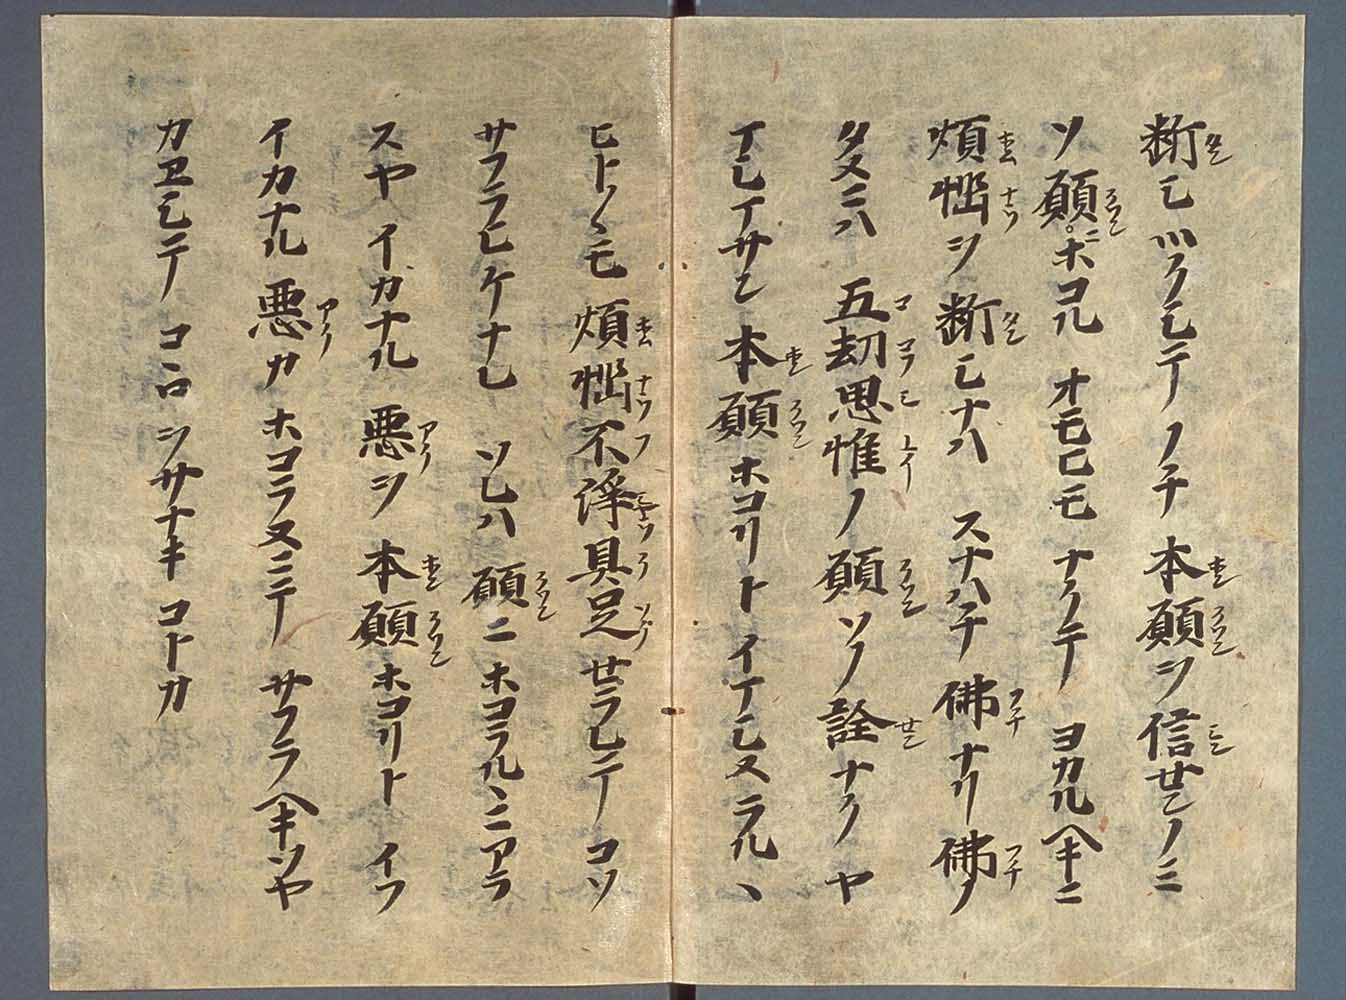 断シツクシテノチ本願ヲ信センノミ
ソ願ニホコルオモヒモナクテヨカルヘキニ
煩惱ヲ断シナハスナハチ佛ナリ佛ノ
タメニハ五劫思惟ノ願ソノ詮ナクヤ
マシマサン本願ホコリトイマシメラルヽ
ヒト〱モ煩惱不淨具足セラレテコソ
サフラヒケナレソレハ願ニホコラルヽニアラ
スヤイカナル悪ヲ本願ホコリトイフ
イカナル悪カホコラヌニテサフラヘキソヤ
カヱシテコヽロヲサナキコトカ